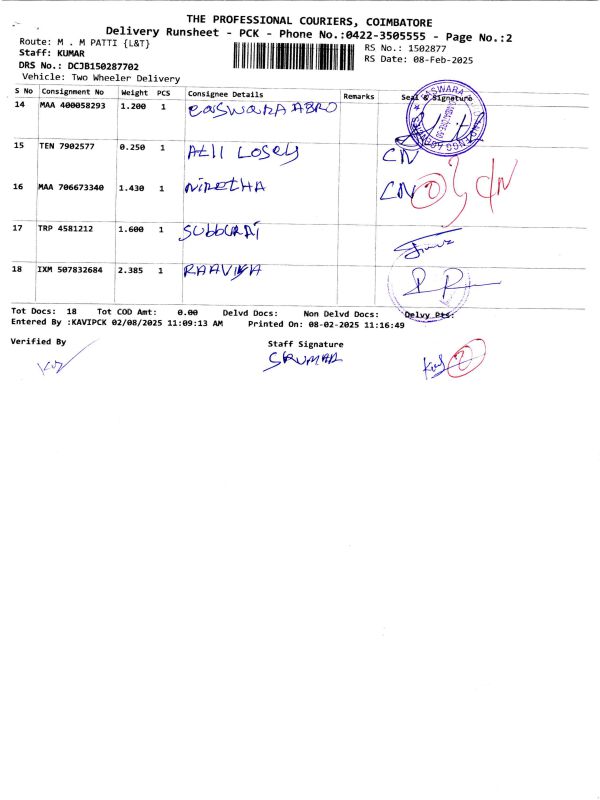 THE PROFESSIONAL COURIERS, COIMBATORE
Delivery Runsheet - PCK - Phone No.:0422-3505555 - Page No.:2
Route: M . M PATTI {L&T}
RS No.: 1502877
Staff: KUMAR
RS Date: 08-Feb-2025
DRS No.: DCJB150287702
Vehicle: Two Wheeler Delivery
S No Consignment No Weight PCS Consignee Details Remarks Seal & Signature
14 MAA 400058293 1.200 1 EASWARA ABRO
15 TEN 7902577 0.250 1 CN
16 MAA 706673340 1.430 1 NIRETHA CN 2 CN
17 TRP 4581212 1.600 1 SUBBURAI
18 IXM 507832684 2.385 1 RAAVIYA
Tot Docs: 18 Tot COD Amt: 0.00 Delvd Docs: Non Delvd Docs: Delvy Pts:
Entered By :KAVIPCK 02/08/2025 11:09:13 AM Printed On: 08-02-2025 11:16:49
Verified By Staff Signature
SKUMAR 2